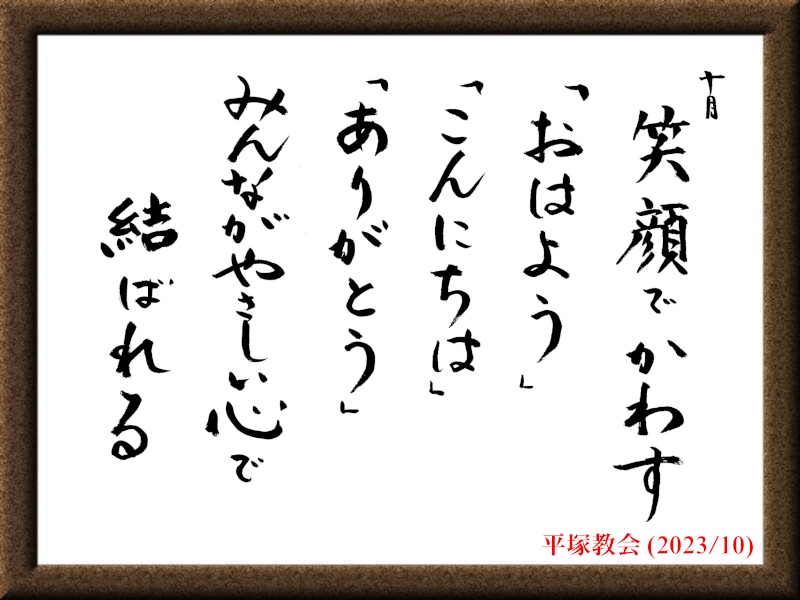 十月
笑顔でかわす
「おはよう」
「こんにちは」
「ありがとう」
みんながやさしい心で
結ばれる
平塚教会 (2023/10)